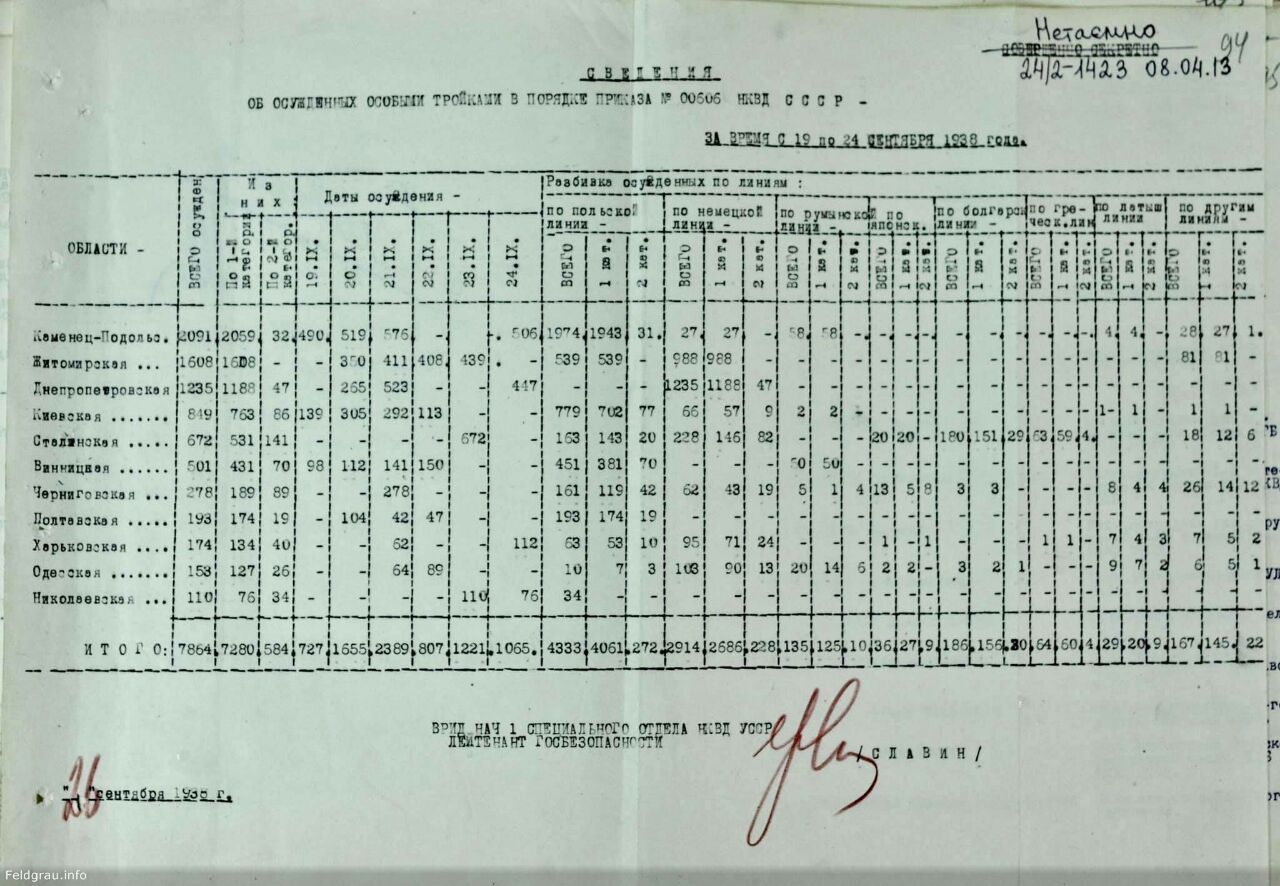 Нетаємно
СОВЕРШЕННО СЕКРЕТНО
94
24/2-1423 08.04.13
СВЕДЕНИЯ
ОБ ОСУЖДЕННЫХ ОСОБЫМИ ТРОЙКАМИ В ПОРЯДКЕ ПРИКАЗА № 00606 НКВД СССР -
ЗА ВРЕМЯ С 19 по 24 СЕНТЯБРЯ 1938 года.
ОБЛАСТИ - ВСЕГО осужден Из них: Даты осуждения - Разбивка осужденных по линиям :
По 1-й категории По 2-й категор. 19.IX. 20.IX. 21.IX. 22.IX. 23.IX. 24.IX.
по польской линии - по немецкой линии - по румынской линии - по японск. по болгарск линии - по гре-ческ.лин по латыш линии по другим линиям -
ВСЕГО 1 кат. 2 кат. ВСЕГО 1 кат. 2 кат. ВСЕГО 1 кат. 2 кат. ВСЕГО 1 кат. 2 кат. ВСЕГО 1 кат. 2 кат. ВСЕГО 1 кат. 2 кат. ВСЕГО 1 кат. 2 кат. ВСЕГО 1 кат. 2 кат.
Каменец-Подольс. 2091 2059 32 490 519 576 - - 506 1974 1943 31. 27 27 - 58 58 - - - - - - - - - - 4 4 - 28 27 1.
Житомирская ... 1608 1608 - - 350 411 408 439 - 539 539 - 988 988 - - - - - - - - - - - - - - - - 81 81 -
Днепропетровская 1235 1188 47 - 265 523 - - 447 - - - 1235 1188 47 - - - - - - - - - - - - - - - - - -
Киевская ....... 849 763 86 139 305 292 113 - - 779 702 77 66 57 9 2 2 - - - - - - - - - - 1 1 - 1 1 -
Сталинская ..... 672 531 141 - - - - 672 - 163 143 20 228 146 82 - - - 20 20 - 180 151 29 63 59 4. - - - 18 12 6
Винницкая ...... 501 431 70 98 112 141 150 - - 451 381 70 - - - 50 50 - - - - - - - - - - - - - - - -
Черниговская ... 278 189 89 - - 278 - - - 161 119 42 62 43 19 5 1 4 13 5 8 3 3 - - - - 8 4 4 26 14 12
Полтавская ..... 193 174 19 - 104 42 47 - - 193 174 19 - - - - - - - - - - - - - - - - - - - - -
Харьковская .... 174 134 40 - - 62 - - 112 63 53 10 95 71 24 - - - 1 - 1 - - - 1 1 - 7 4 3 7 5 2
Одесская ....... 153 127 26 - - 64 89 - - 10 7 3 103 90 13 20 14 6 2 2 - 3 2 1 - - - 9 7 2 6 5 1
Николаевская ... 110 76 34 - - - - 110 76 34 - - - - - - - - - - - - - - - - - - - - - -
ИТОГО: 7864 7280 584 727 1655 2389 807 1221 1065. 4333 4061 272. 2914 2686 228 135 125 10 36 27 9 186 156 30 64 60 4 29 20 9. 167. 145. 22
ВРИД НАЧ 1 СПЕЦИАЛЬНОГО ОТДЕЛА НКВД УССР
ЛЕЙТЕНАНТ ГОСБЕЗОПАСНОСТИ
/СЛАВИН/
"26" сентября 1938 г.
Feldgrau.info